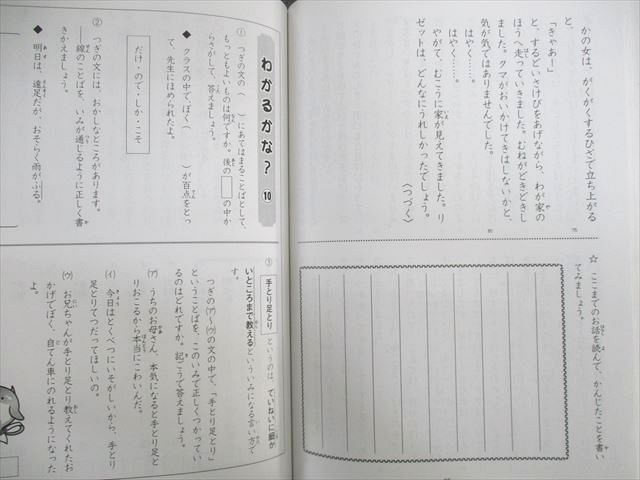 かの女は、がくがくするひざで立ち上がる
と、
「きゃあー」
と、するどいさけびをあげながら、わが家の
ほうへ走っていきました。むねがどきどきし
ました。クマがおいかけてきはしないかと、
気が気ではありませんでした。
はやく……。
はやく……。
やがて、むこうに家が見えてきました。リ
ゼットは、どんなにうれしかったでしょう。
〈つづく〉
75
80
☆ ここまでのお話を読んで、かんじたことを書い
てみましょう。
わかるかな? ⑩
① つぎの文の( )にあてはまることばとして、
もっともよいものは何ですか。後の□の中か
らさがして、答えましょう。
◆ クラスの中で、ぼく( )が百点をとっ
て、先生にほめられたよ。
だけ・ので・しか・こそ
② つぎの文には、おかしなところがあります。
――線のことばを、いみが通じるように正しく書
きかえましょう。
◆ 明日は、遠足だが、おそらく雨がふる。
③ 手とり足とり というのは、ていねいに細か
いところまで教えるといういみになる言い方で
す。
つぎの(ア)~(ウ)の文の中で、「手とり足とり」
ということばを、このいみで正しくつかってい
るのはどれですか。記ごうで答えましょう。
(ア) うちのお母さん、本気になると手とり足と
りおこるから本当にこわいんだ。
(イ) 今日はとくべつにいそがしいから、手とり
足とりてつだってほしいの。
(ウ) お兄ちゃんが手とり足とり教えてくれたお
かげでぼく、自てん車にのれるようになった
よ。